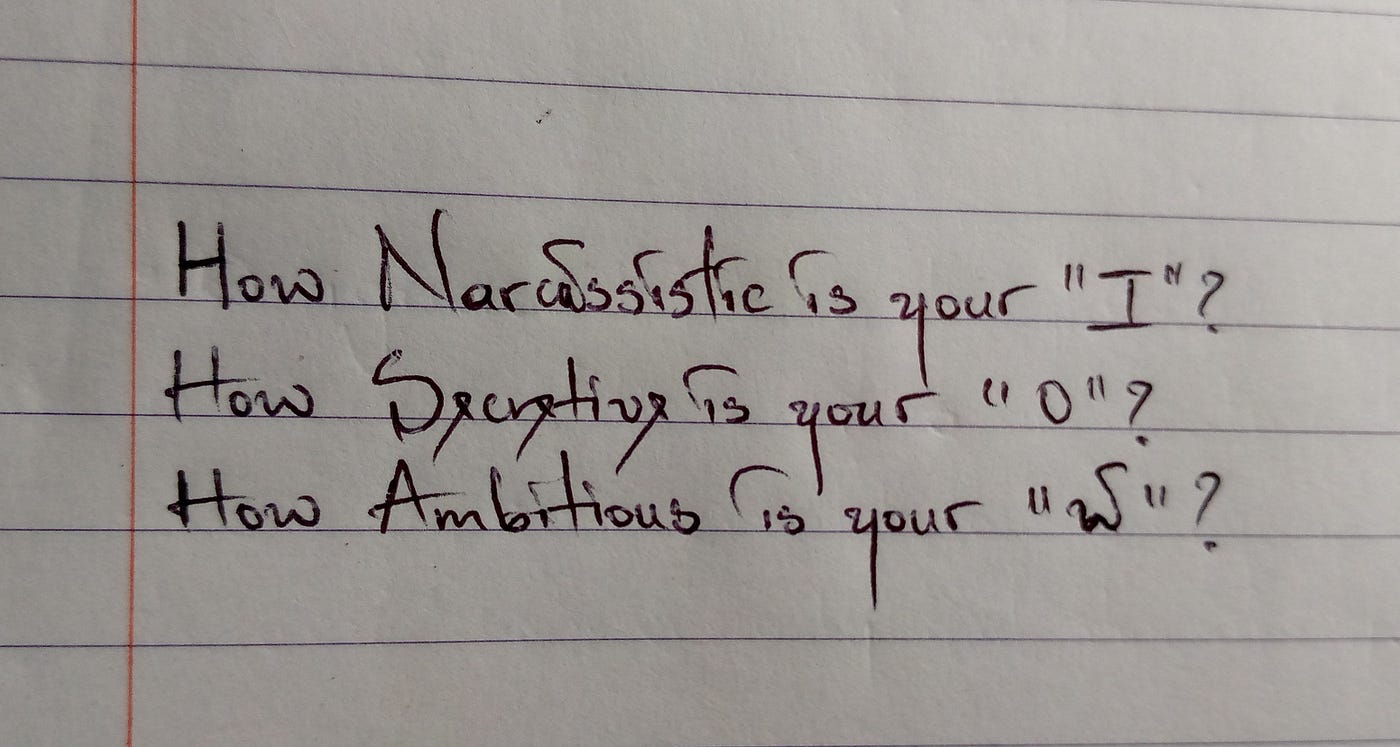 How Narcissistic is your "I"?
How Secretive is your "O"?
How Ambitious is your "W"?